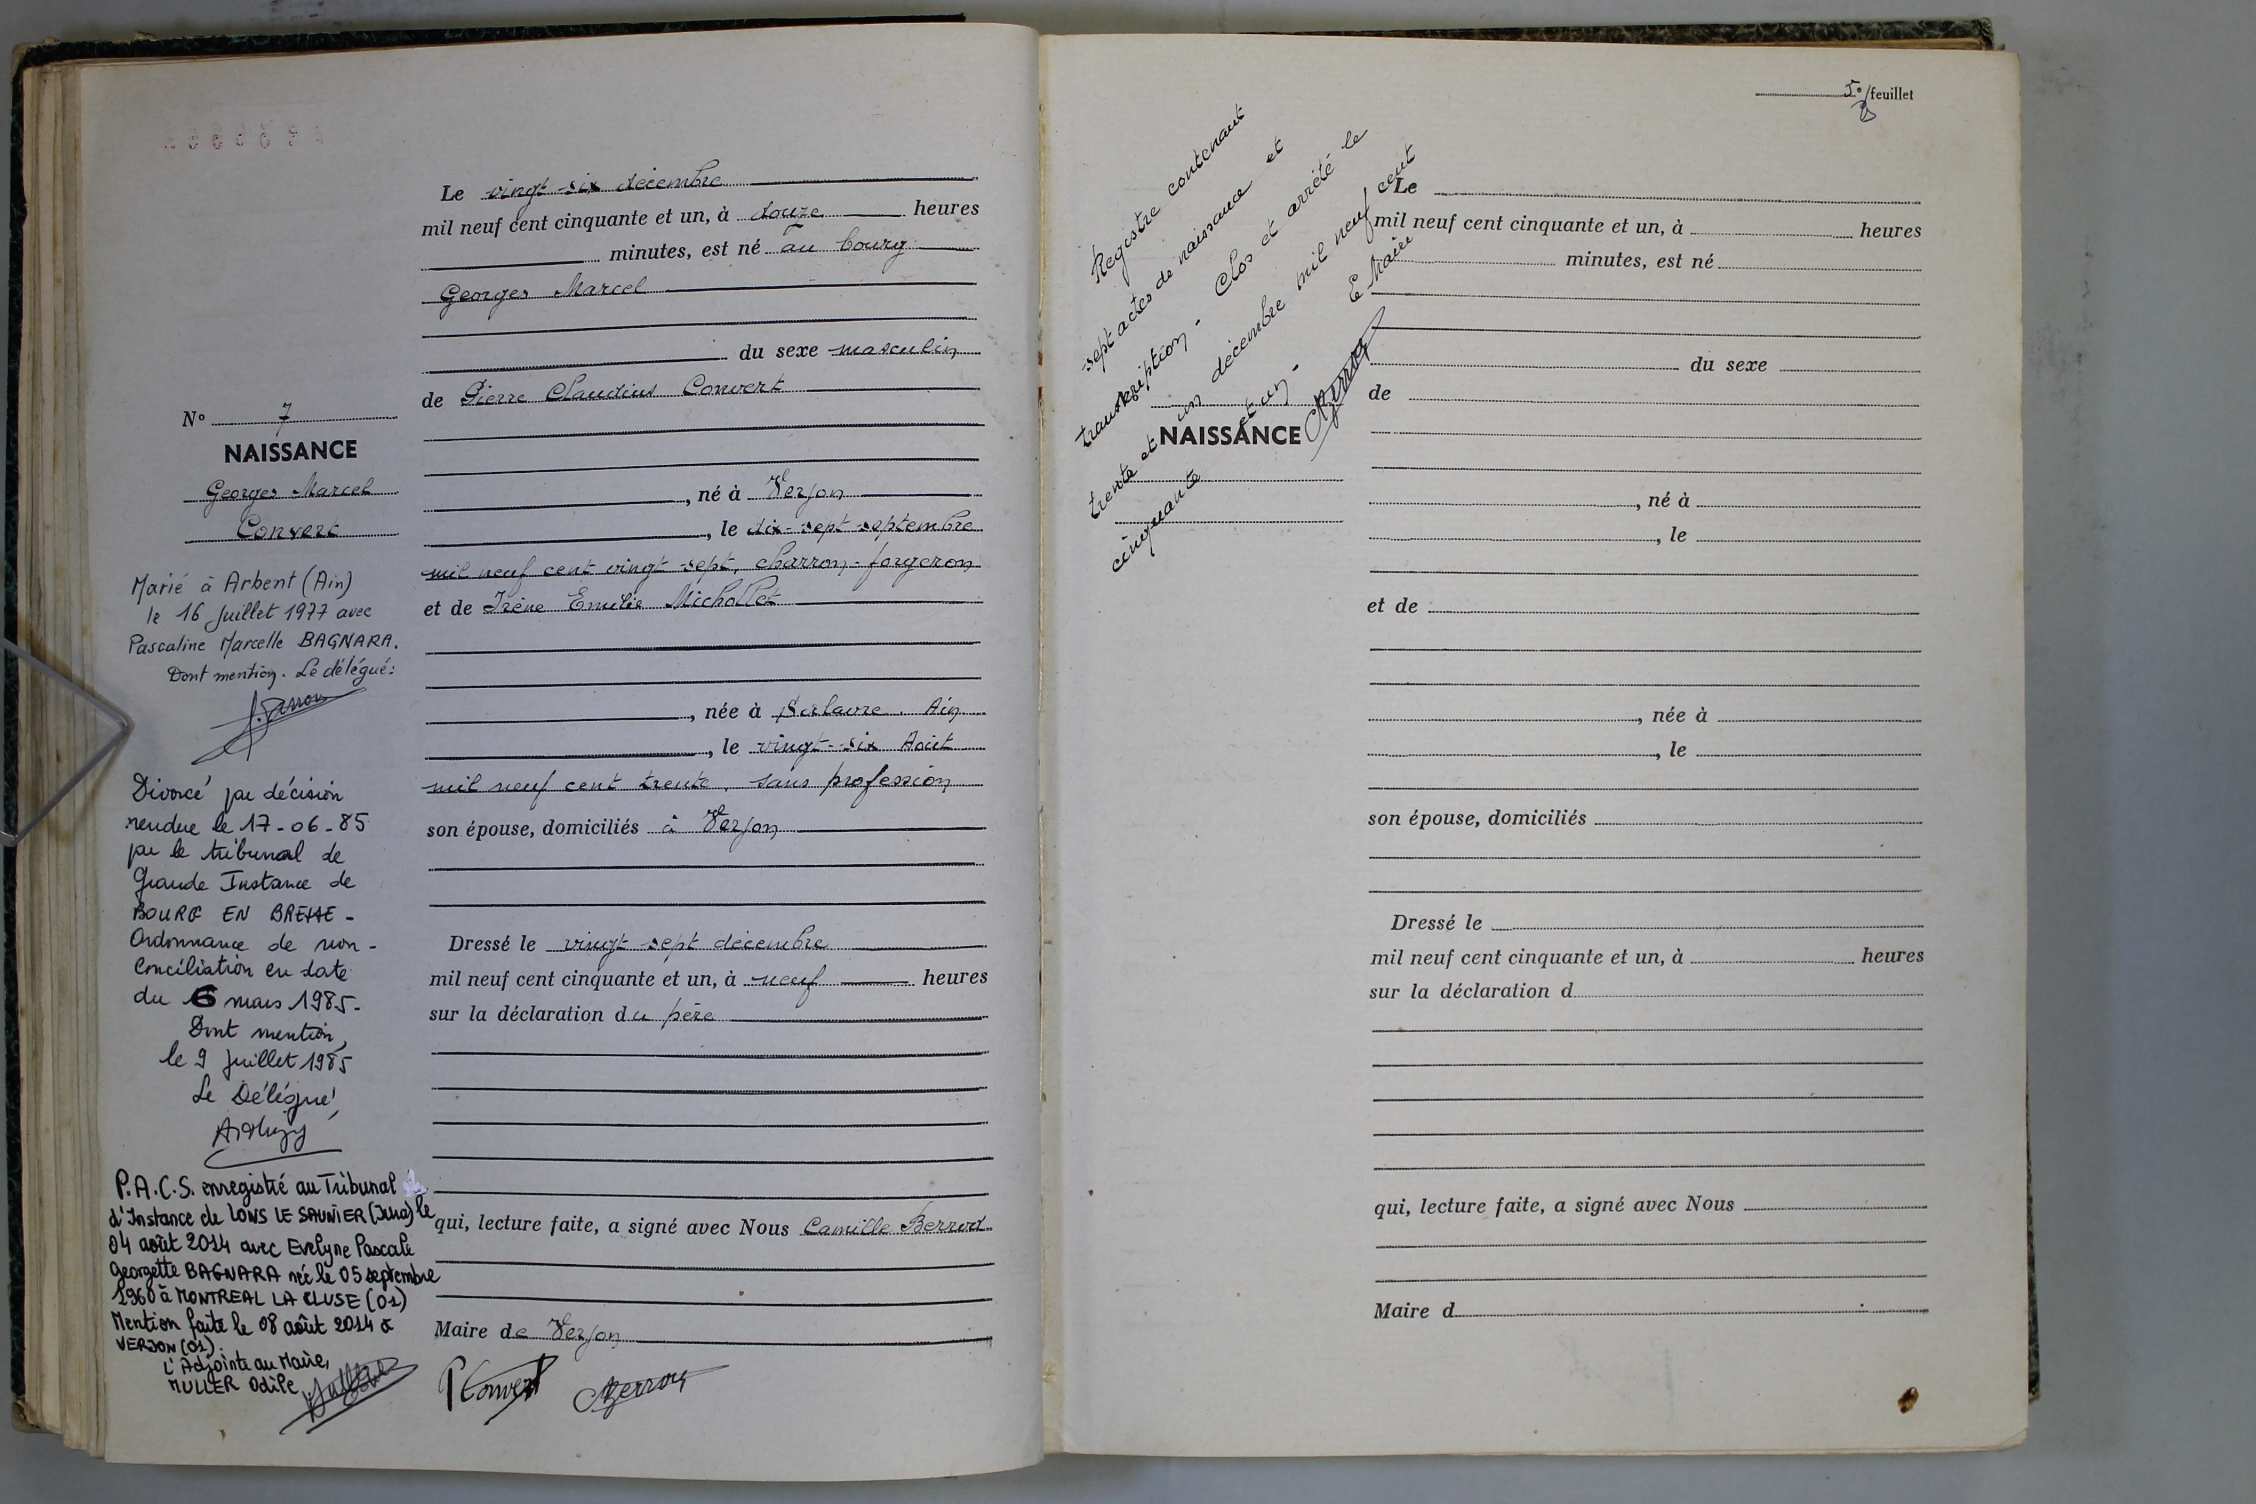 N° 7
NAISSANCE
Georges Marcel
Convert
Marié à Arbent (Ain)
le 16 Juillet 1977 avec
Pascaline Marcelle BAGNARA.
Dont mention. Le délégué:
Divorcé par décision
rendue le 17-06-85
par le tribunal de
Grande Instance de
BOURG EN BRESSE -
Ordonnance de non-
Conciliation en date
du 6 mars 1985-
Dont mention,
le 9 Juillet 1985
Le Délégué,
P.A.C.S. enregistré au Tribunal
d'Instance de LONS LE SAUNIER (Jura) le
04 août 2014 avec Evelyne Pascale
Georgette BAGNARA née le 05 septembre
1960 à MONTREAL LA CLUSE (01)
Mention faite le 08 août 2014 à
VERJON (01).
L'Adjointe au Maire,
MULLER Odile
Le vingt-six décembre
mil neuf cent cinquante et un, à douze heures
minutes, est né au bourg
Georges Marcel
du sexe masculin
de Pierre Claudius Convert
, né à Verjon
, le dix-sept septembre
mil neuf cent vingt-sept, charron-forgeron
et de Irène Emélie Michollet
, née à Ain
, le vingt-six Août
mil neuf cent trente, sans profession
son épouse, domiciliés à Verjon
Dressé le vingt-sept décembre
mil neuf cent cinquante et un, à neuf heures
sur la déclaration du père
qui, lecture faite, a signé avec Nous Camille Berrod
Maire de Verjon
PConvert
5e feuillet
Registre contenant
sept actes de naissance et
transkription - Clos et arrêté le
trente et un décembre mil neuf cent
cinquante et un -
Le Maire
NAISSANCE
Le
mil neuf cent cinquante et un, à heures
minutes, est né
du sexe
de
, né à
, le
et de
, née à
, le
son épouse, domiciliés
Dressé le
mil neuf cent cinquante et un, à heures
sur la déclaration d
qui, lecture faite, a signé avec Nous
Maire d